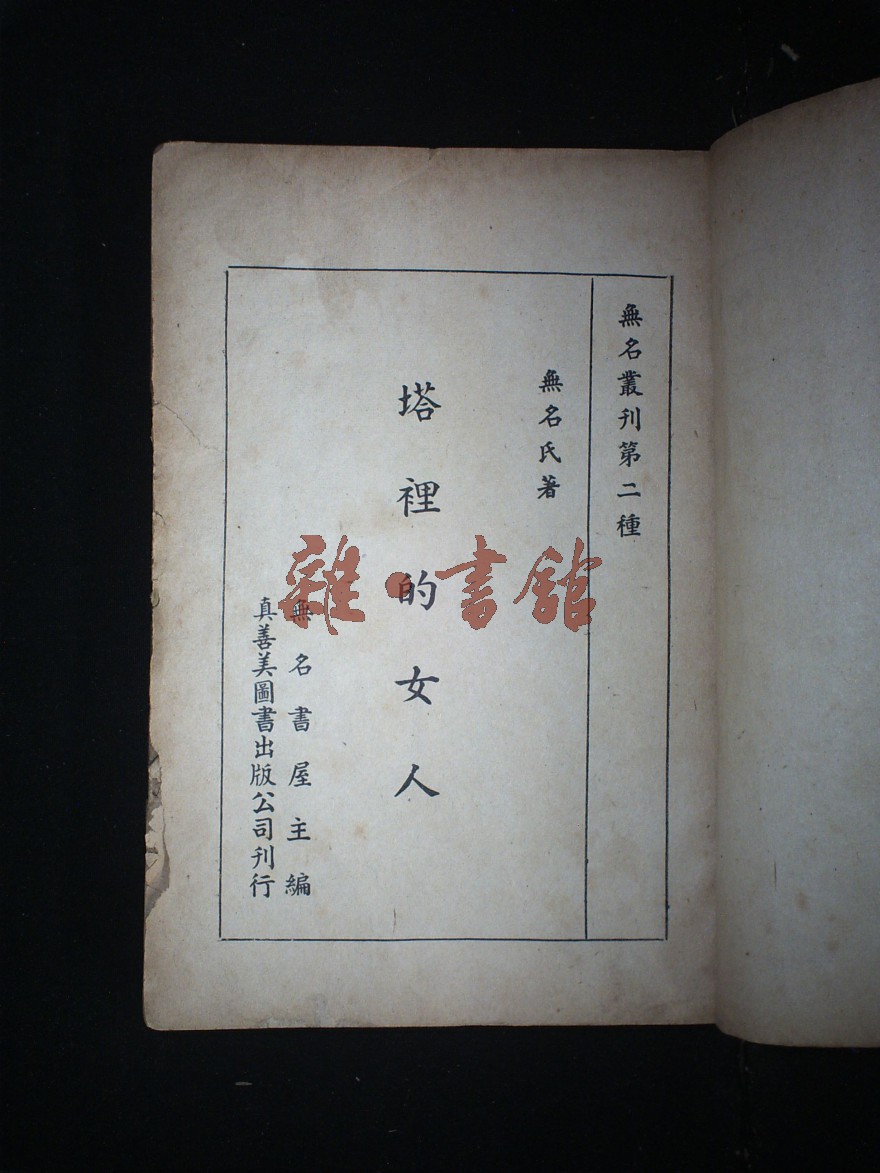 無名叢刊第二種
無名氏著
塔裡的女人
無名書屋主編
真善美圖書出版公司刊行
雜·書館